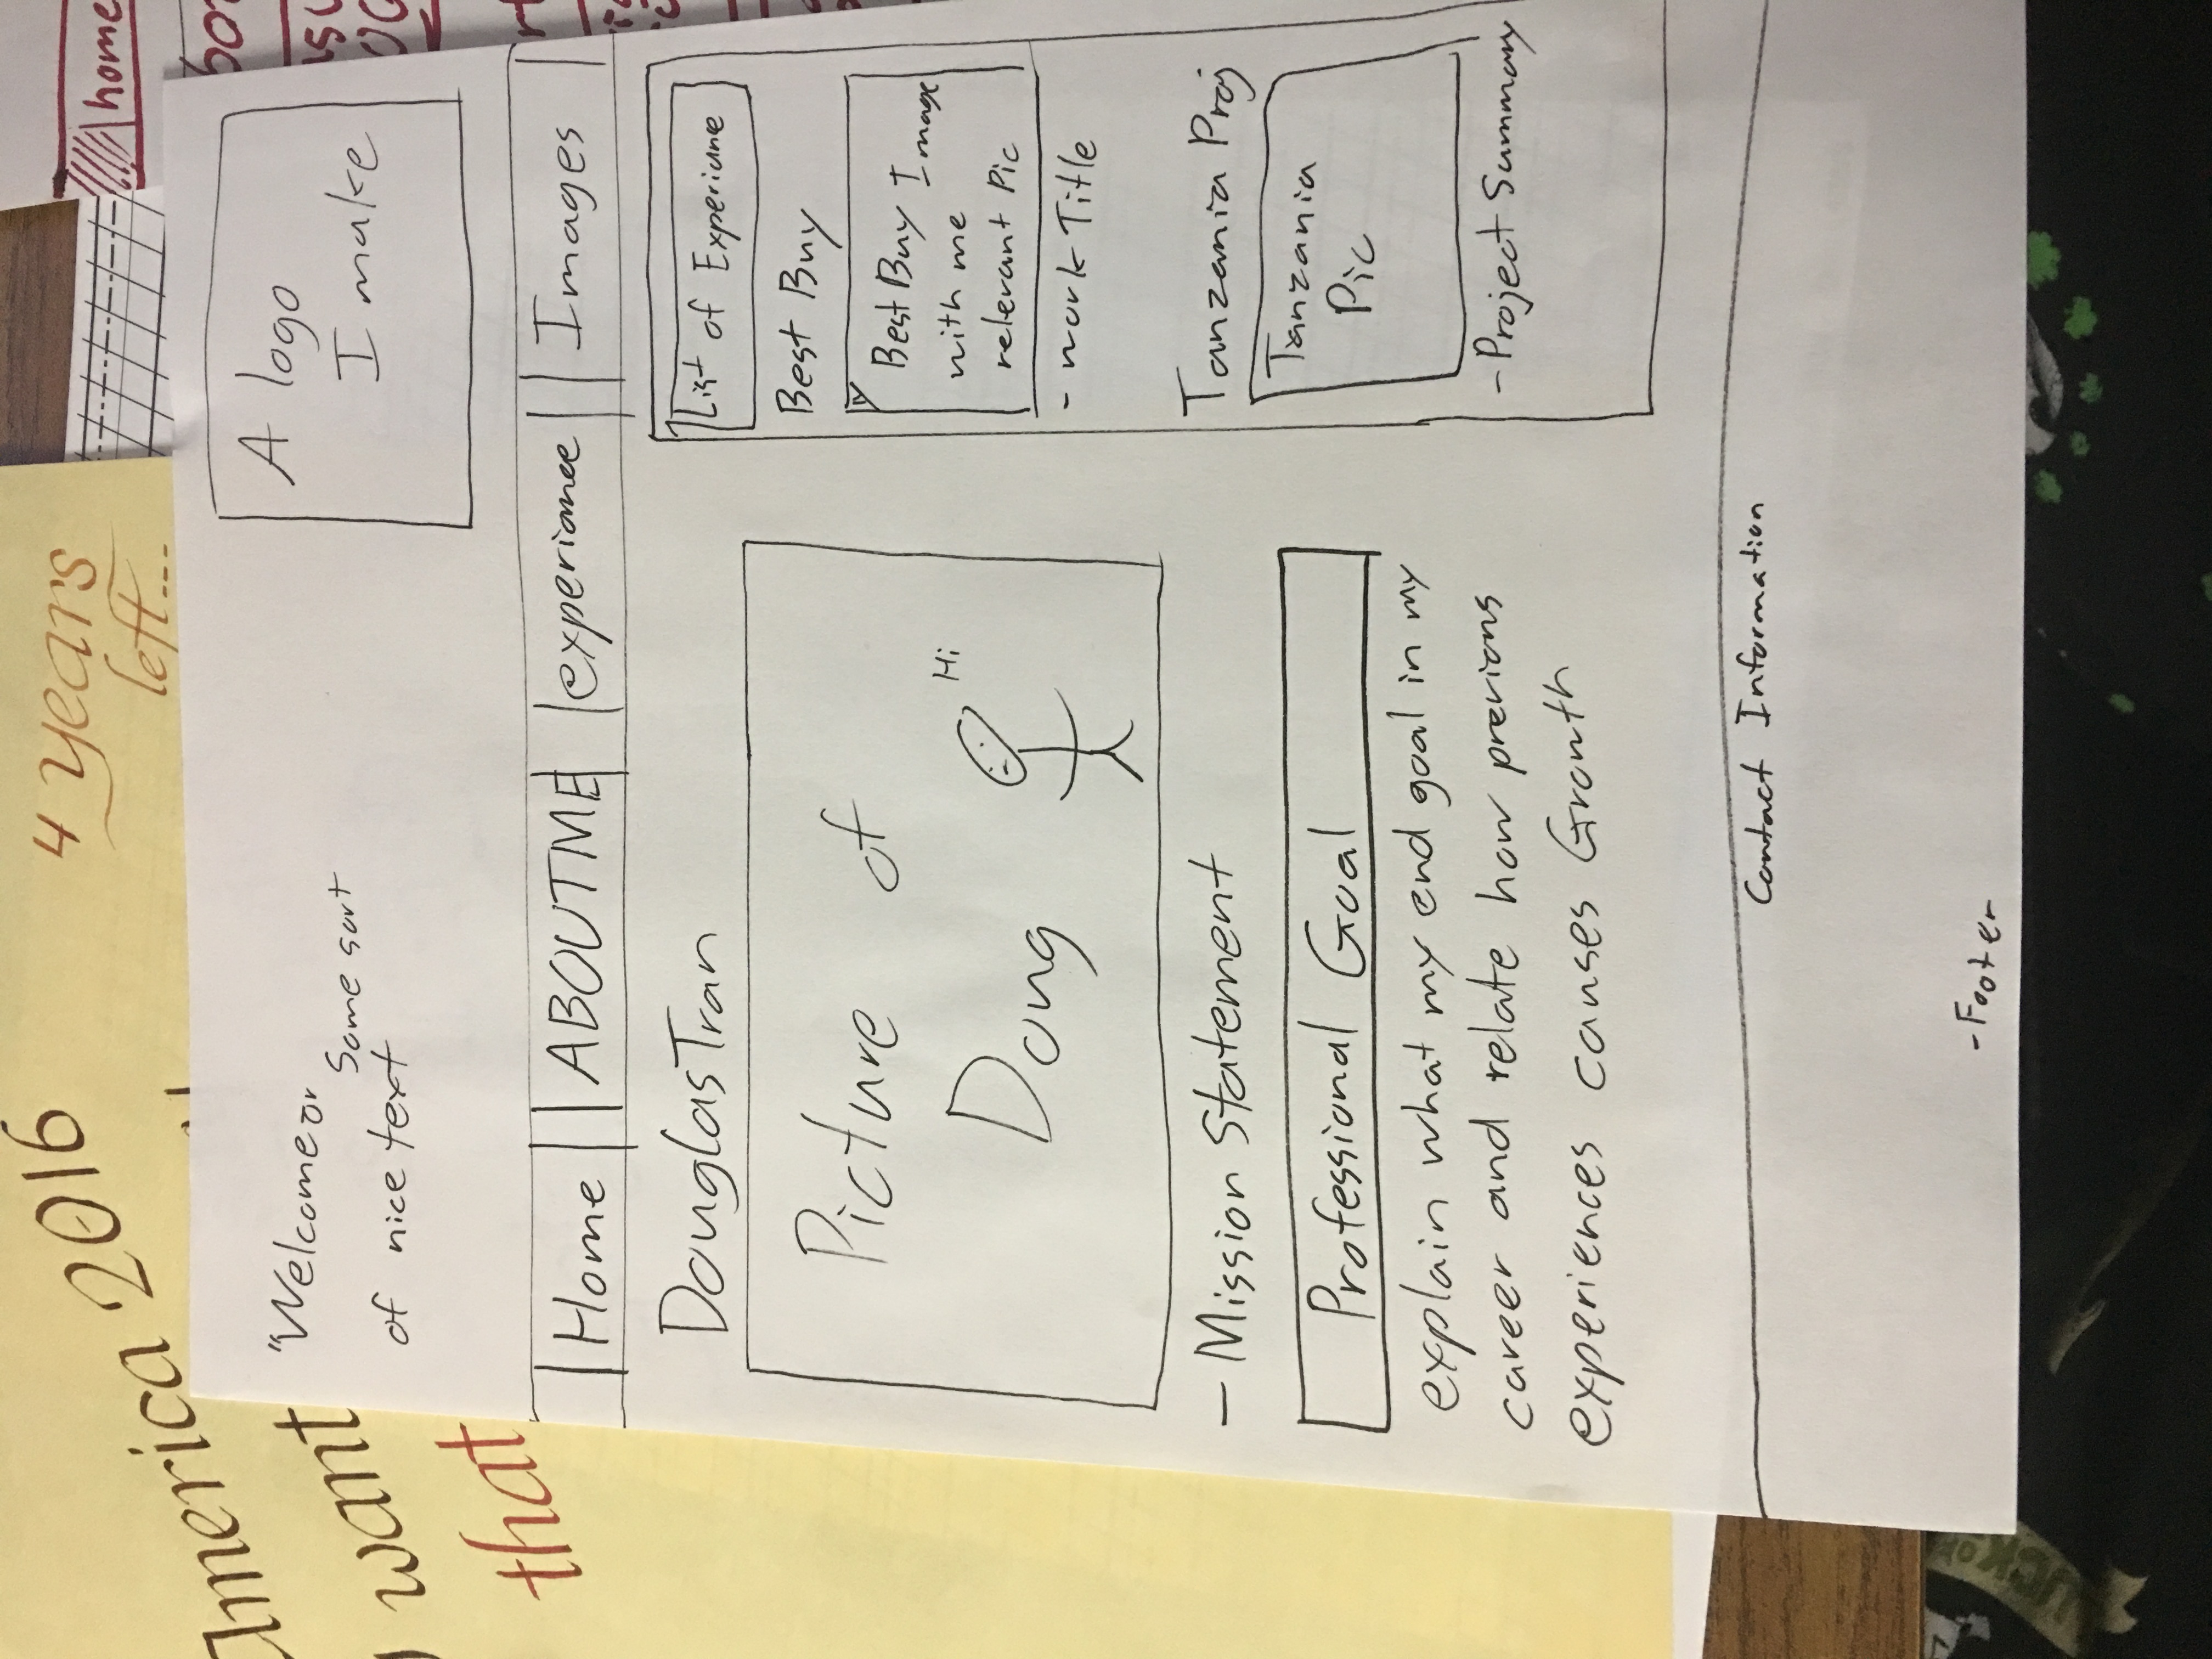 America 2016
want
that
4 years
left...
home
"Welcome or
Some sort
of nice text
A logo
I make
Home
ABOUT ME
experiance
Images
Douglas Tran
Picture of
Doug
Hi
- Mission Statement
Professional Goal
explain what my end goal in my
career and relate how previous
experiences causes Growth
List of Experiance
Best Buy
Best Buy Image
with me
relevant Pic
- work Title
Tanzania Proj
Tanzania
Pic
- Project Summary
Contact Information
- Footer